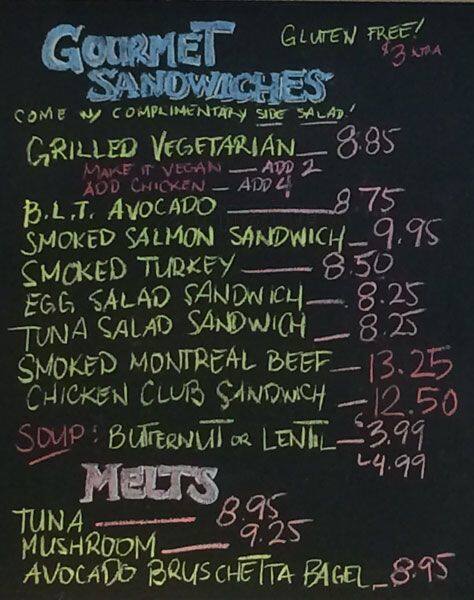 GOURMET SANDWICHES
GLUTEN FREE!
$3 XTRA
COME W/ COMPLIMENTARY SIDE SALAD!
GRILLED VEGETARIAN — 8.85
MAKE IT VEGAN — ADD 2
ADD CHICKEN — ADD 4
B.L.T. AVOCADO — 8.75
SMOKED SALMON SANDWICH — 9.95
SMOKED TURKEY — 8.50
EGG SALAD SANDWICH — 8.25
TUNA SALAD SANDWICH — 8.25
SMOKED MONTREAL BEEF — 13.25
CHICKEN CLUB SANDWICH — 12.50
SOUP: BUTTERNUT OR LENTIL — S 3.99
L 4.99
MELTS
TUNA — 8.95
MUSHROOM — 9.25
AVOCADO BRUSCHETTA BAGEL — 8.95